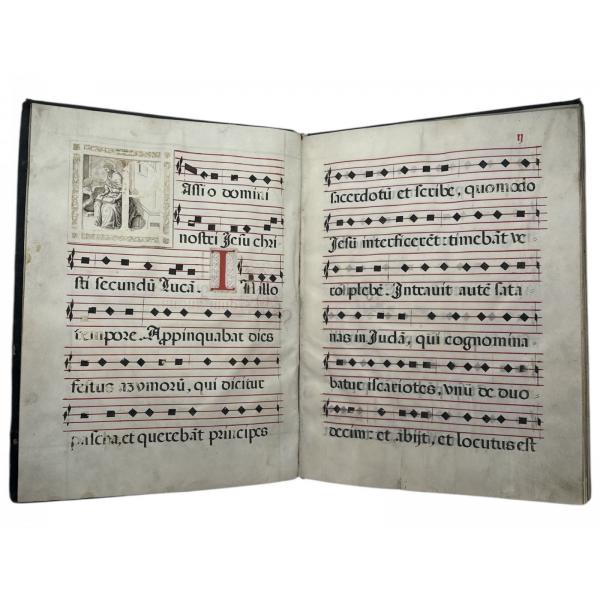 assi o domini
nostri Jesu chri
sti secundũ Lucã. In illo
tempore. Appinquabat dies
festus azymorũ, qui dicitur
pascha, et querebãt principes
sacerdotũ et scribe, quomodo
Jesũ interficerẽt: timebãt ve
ro plebẽ. Intravit autẽ sata
nas in Judã, qui cognomina
batur iscariotes, unũ de duo
decim: et abijt, et locutus est